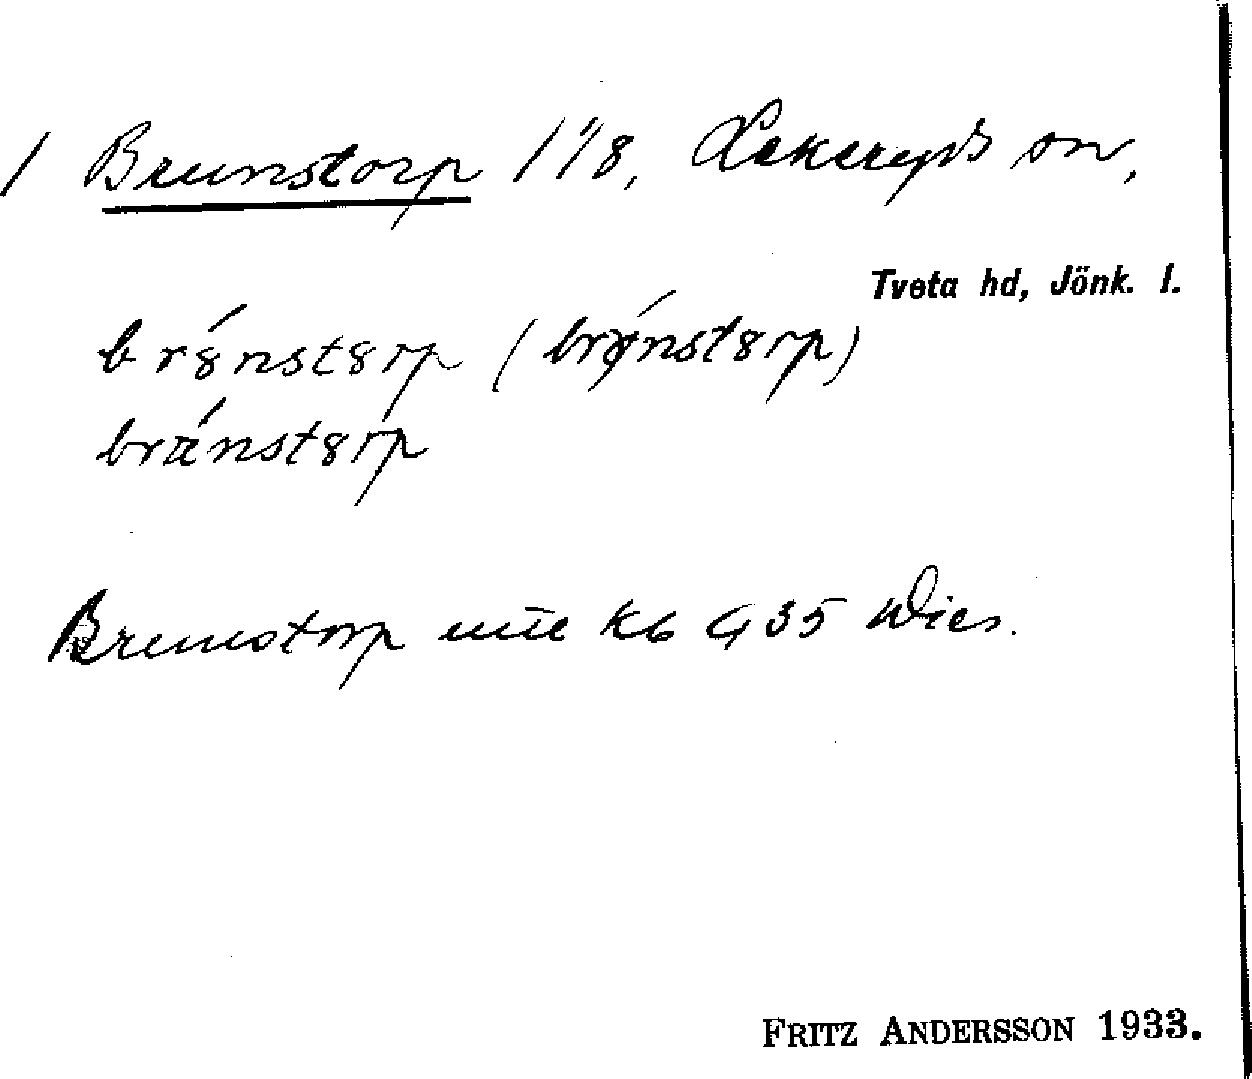 / Brunstorp 1 1/8, Lekeryds sn,
Tveta hd, Jönk. l.
br8nst8rp (brynst8rp)
bránst8rp
Brunstorp
Kb G 35
FRITZ ANDERSSON 1933.